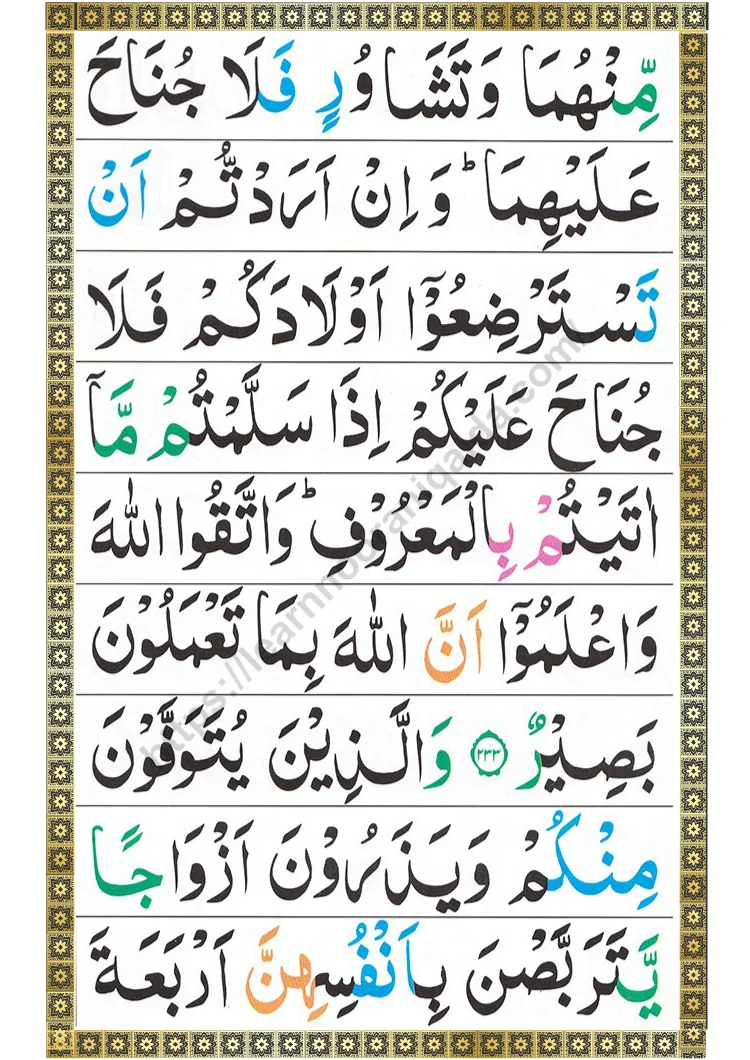 مِّنْهُمَا وَتَشَاوُرٍ فَلَا جُنَاحَ
عَلَيْهِمَا ؕ وَاِنْ اَرَدْتُّمْ اَنْ
تَسْتَرْضِعُوْۤا اَوْلَادَكُمْ فَلَا
جُنَاحَ عَلَيْكُمْ اِذَا سَلَّمْتُمْ مَّاۤ
اٰتَيْتُمْ بِالْمَعْرُوْفِ ؕ وَاتَّقُوا اللّٰهَ
وَاعْلَمُوْۤا اَنَّ اللّٰهَ بِمَا تَعْمَلُوْنَ
بَصِيْرٌ ﴿۲۳۳﴾ وَالَّذِيْنَ يُتَوَفَّوْنَ
مِنْكُمْ وَيَذَرُوْنَ اَزْوَاجًا
يَّتَرَبَّصْنَ بِاَنْفُسِهِنَّ اَرْبَعَةَ
https://learnnooraniqaida.com/